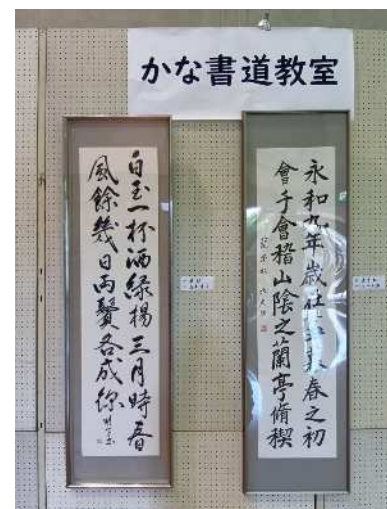 かな書道教室
永和九年歳在癸丑暮春之初
會于會稽山陰之蘭亭脩禊
白玉一杯酒緑楊三月時春
風餘幾日兩鬢各成絲